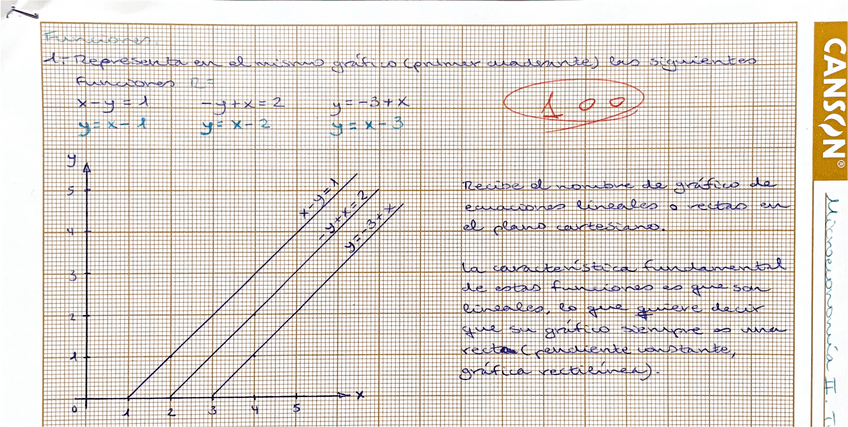 Funciones.
1.- Representa en el mismo gráfico (primer cuadrante) las siguientes
funciones R=
x-y=1 -y+x=2 y=-3+x
y=x-1 y=x-2 y=x-3
100
CANSON®
Microeconomía II.
y
5
4
3
2
1
0 1 2 3 4 5 x
x-y=1
-y+x=2
y=-3+x
Recibe el nombre de gráfico de
ecuaciones lineales o rectas en
el plano cartesiano.
La característica fundamental
de estas funciones es que son
lineales, lo que quiere decir
que su gráfico siempre es una
recta (pendiente constante,
gráfica rectilínea).